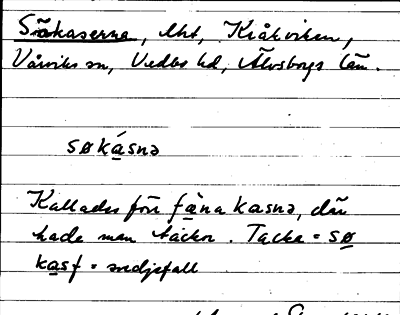 Sökaserna, lht, Kråkviken,
Vårviks sn, Vedbo hd, Älvsborgs län.
søkásnə
Kallades förr fä̀na kasnə, där
hade man täckor. Tacka = sø
kasf = svedjefall